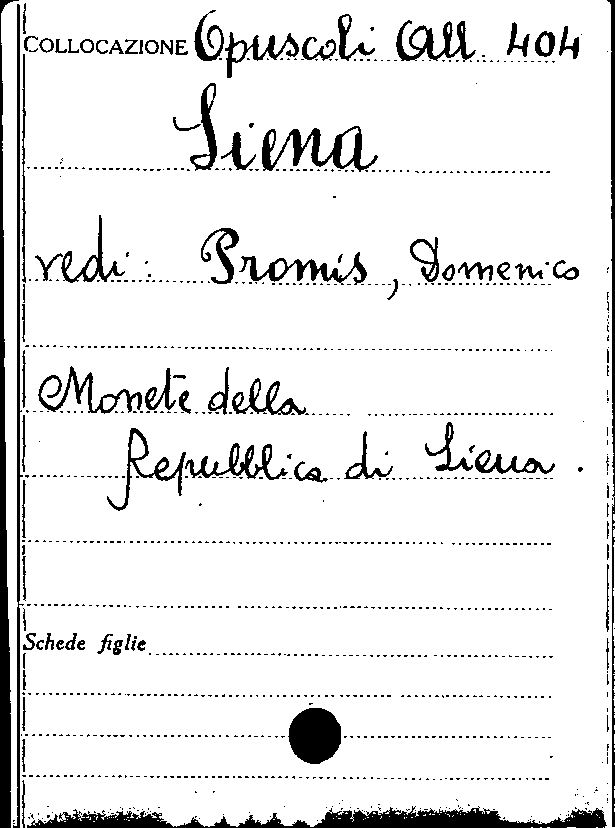 COLLOCAZIONE Opuscoli All. 404
Siena
vedi: Promis, Domenico
Monete della
Repubblica di Siena.
Schede figlie